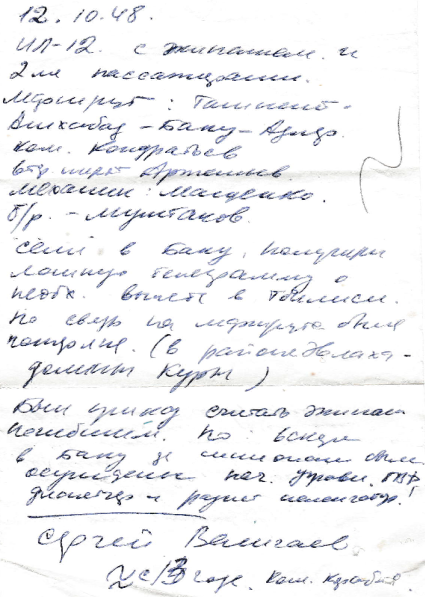 12.10.48.
ИЛ-12. с экипажем и
2мя пассажирами.
Маршрут: Ташкент-
Ашхабад-Баку-Адлер.
ком. Кондратьев
втор. пилот Артемьев
механик: Мащенко.
б/р. - Муштаков.
Сели в Баку, получили
телеграмму о
необх. вылета в Тбилиси.
Но связь на маршруте была
потеряна. (в районе
долины Куры)
Был приказ считать экипаж
погибшим. Но вскоре
в Баку за были
осуждены нач. управл.
диспетчер и радист
Сергей Валичаев